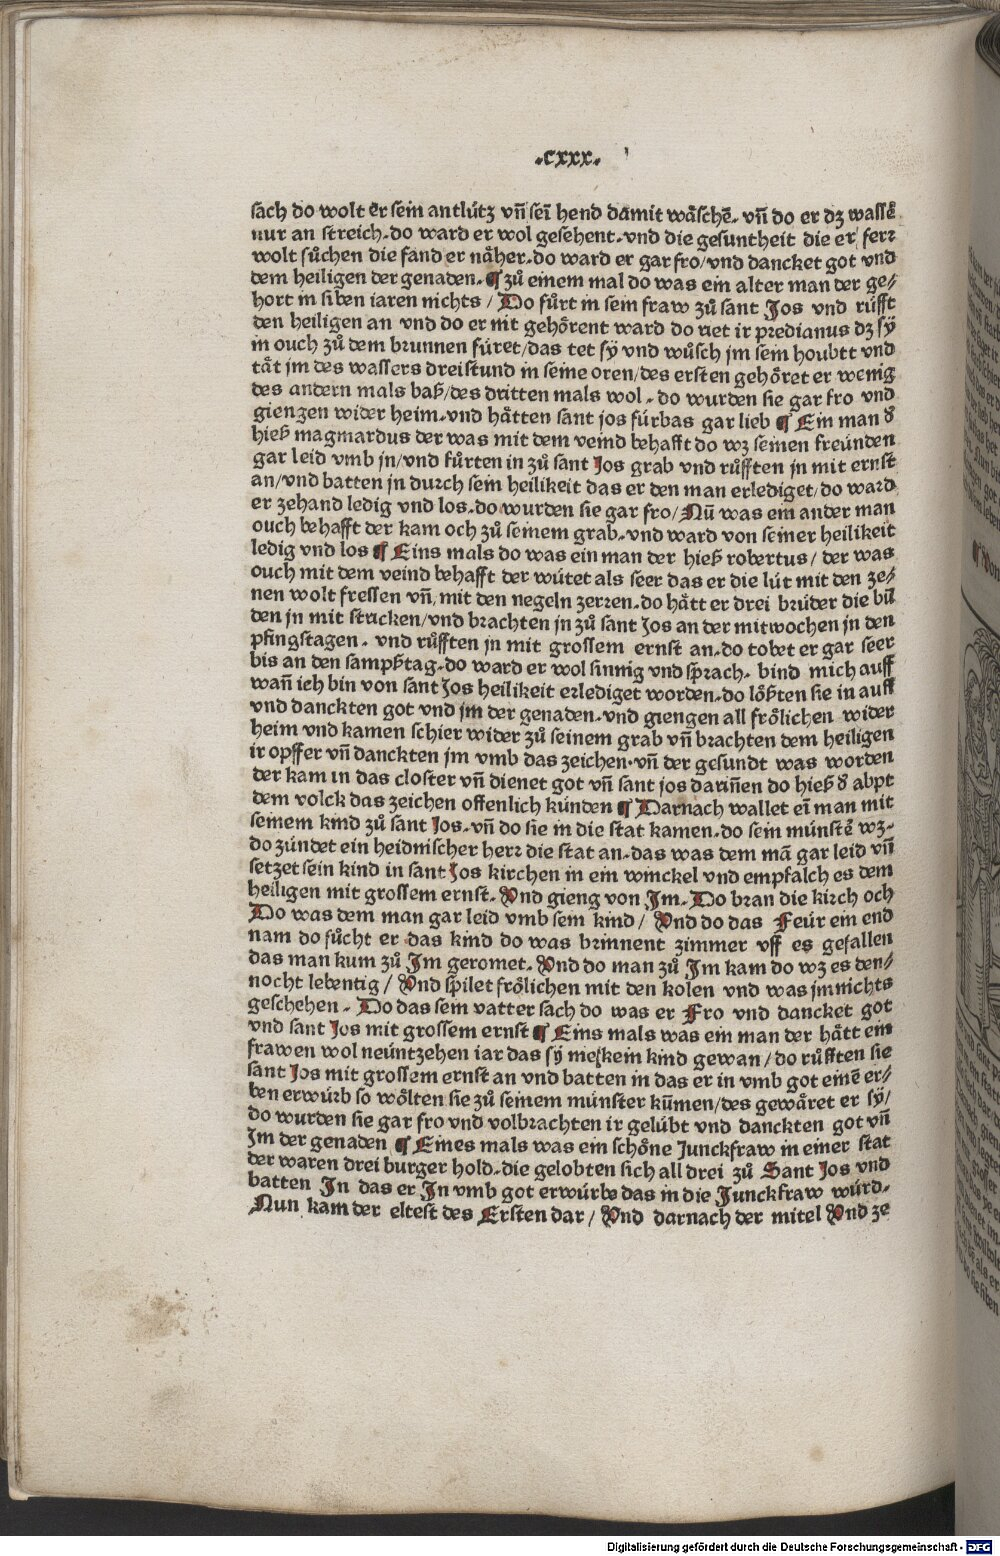 .cxxx.
sach do wolt er sein antlútz vñ sei᷑ hend damit wäschē. vñ do er dz wassē
nur an streich.do ward er wol gesehent.vnd die gesuntheit die er ferr
wolt sůchen die fand er näher.do ward er gar fro/vnd dancket got vnd
dem heiligen der genaden. ¶ zů einem mal do was ein alter man der ge⸗
hort in siben iaren nichts / Do fůrt in sein fraw zů sant Jos vnd růfft
den heiligen an vnd do er nit gehörent ward do riet ir predianus dz sÿ
in ouch zů dem brunnen füret/das tet sÿ vnd wůsch jm sein houbtt vnd
tät jm des wassers dreistund in seine oren/des ersten gehöret er wenig
des andern mals baß/des dritten mals wol . do wurden sie gar fro vnd
giengen wider heim.vnd hätten sant jos fúrbas gar lieb ¶ Ein man d᷑
hieß magmardus der was mit dem veind behafft do wz seinen freúnden
gar leid vmb jn/vnd fůrten in zů sant Jos grab vnd růfften jn mit ernst
an/vnd batten jn durch sein heilikeit das er den man erlediget/do ward
er zehand ledig vnd los.do wurden sie gar fro/Nū was ein ander man
ouch behafft der kam och zů seinem grab.vnd ward von seiner heilikeit
ledig vnd los ¶ Eins mals do was ein man der hieß robertus / der was
ouch mit dem veind behafft der wútet als seer das er die lút mit den ze⸗
nen wolt fressen vñ mit den negeln zerren.do hätt er drei brúder die bū
den jn mit stricken/vnd brachten jn zů sant Jos an der mitwochen in den
pfingstagen . vnd růfften jn mit grossem ernst an.do tobet er gar seer
bis an den sampßtag.do ward er wol sinnig vnd sprach. bind mich auff
wañ ich bin von sant Jos heilikeit erlediget worden.do lößten sie in auff
vnd danckten got vnd jm der genaden.vnd giengen all frölichen wider
heim vnd kamen schier wider zů seinem grab vñ brachten dem heiligen
ir opffer vñ danckten jm vmb das zeichen.vñ der gesundt was worden
der kam in das closter vñ dienet got vñ sant jos dariñen do hieß d᷑ abpt
dem volck das zeichen offenlich kúnden ¶ Darnach wallet ei᷑ man mit
seinem kind zů sant Jos.vñ do sie in die stat kamen.do sein múnstē wz.
do zúndet ein heidnischer herr die stat an.das was dem mā gar leid vñ
setzet sein kind in sant Jos kirchen in ein winckel vnd empfalch es dem
heiligen mit grossem ernst. Vnd gieng von Jm. Do bran die kirch och
Do was dem man gar leid vmb sein kind / Vnd do das Feúr ein end
nam do sůcht er das kind do was brinnent zimmer vff es gefallen
das man kum zů Jm geromet. Vnd do man zů Jm kam do wz es den⸗
nocht lebentig / Vnd spilet frölichen mit den kolen vnd was jm nichts
geschehen . Do das sein vatter sach do was er Fro vnd dancket got
vnd sant Jos mit grossem ernst ¶ Eins mals was ein man der hätt ein
frawen wol neúntzehen iar das sÿ nie kein kind gewan/do růfften sie
sant Jos mit grossem ernst an vnd batten in das er in vmb got einē er⸗
ben erwúrb so wölten sie zů seinem múnster kūmen/des gewäret er sÿ/
do wurden sie gar fro vnd volbrachten ir gelúbt vnd danckten got vñ
Jm der genaden ¶ Eines mals was ein schöne Junckfraw in einer stat
der waren drei burger hold.die gelobten sich all drei zů Sant Jos vnd
batten Jn das er Jn vmb got erwúrbe das in die Junckfraw wúrd.
Nun kam der eltest des Ersten dar / Vnd darnach der mitel Vnd ze
Digitalisierung gefördert durch die Deutsche Forschungsgemeinschaft - DFG